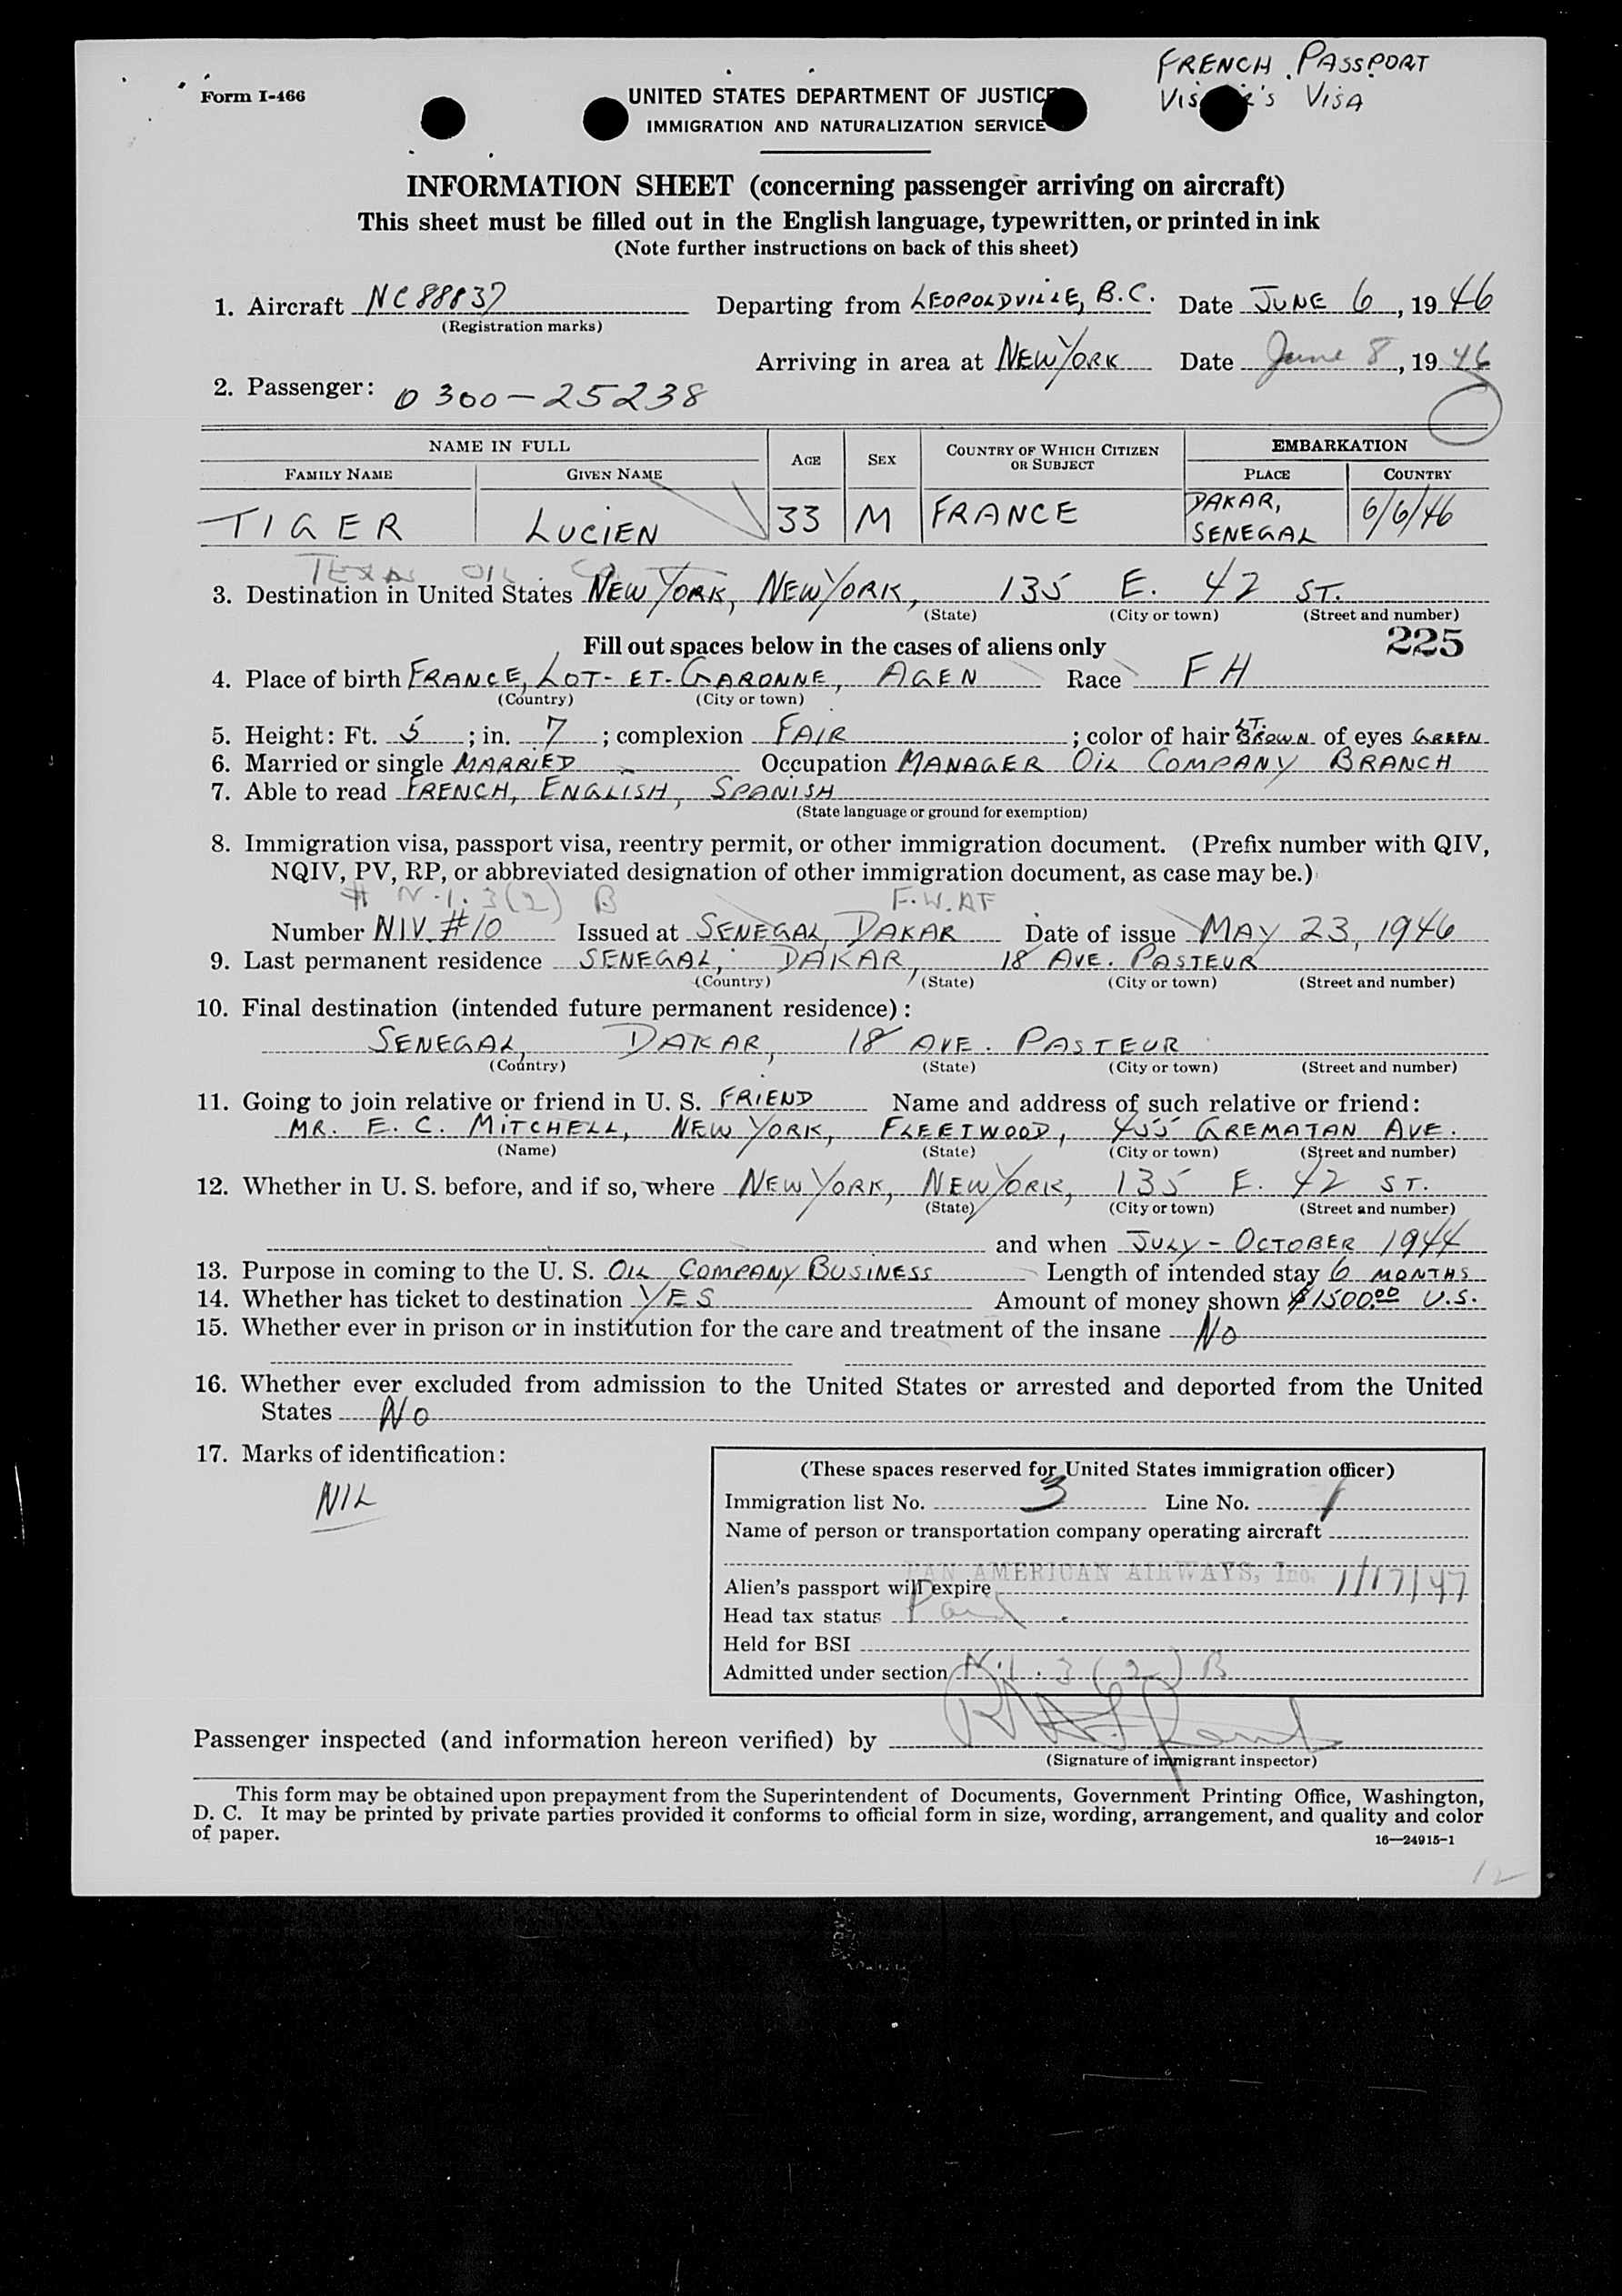 FRENCH PASSPORT
Form I-466
UNITED STATES DEPARTMENT OF JUSTICE
VISA
IMMIGRATION AND NATURALIZATION SERVICE
INFORMATION SHEET (concerning passenger arriving on aircraft)
This sheet must be filled out in the English language, typewritten, or printed in ink
(Note further instructions on back of this sheet)
1. Aircraft NC88837 Departing from LEOPOLDVILLE, B.C. Date JUNE 6, 1946
(Registration marks)
Arriving in area at NEW YORK Date June 8, 1946
2. Passenger: 0300-25238
NAME IN FULL AGE SEX COUNTRY OF WHICH CITIZEN OR SUBJECT EMBARKATION
FAMILY NAME GIVEN NAME PLACE COUNTRY
TIGER LUCIEN 33 M FRANCE DAKAR, SENEGAL 6/6/46
TEXAS OIL CO
3. Destination in United States NEW YORK, NEW YORK, 135 E. 42 ST.
(State) (City or town) (Street and number)
Fill out spaces below in the cases of aliens only 225
4. Place of birth FRANCE, LOT-ET-GARONNE, AGEN Race FH
(Country) (City or town)
5. Height: Ft. 5; in. 7; complexion FAIR; color of hair LT. BROWN of eyes GREEN
6. Married or single MARRIED Occupation MANAGER OIL COMPANY BRANCH
7. Able to read FRENCH, ENGLISH, SPANISH
(State language or ground for exemption)
8. Immigration visa, passport visa, reentry permit, or other immigration document. (Prefix number with QIV,
NQIV, PV, RP, or abbreviated designation of other immigration document, as case may be.)
# N.I. 3(2) B F.W.AF
Number NIV #10 Issued at SENEGAL, DAKAR Date of issue MAY 23, 1946
9. Last permanent residence SENEGAL, DAKAR, 18 AVE. PASTEUR
(Country) (State) (City or town) (Street and number)
10. Final destination (intended future permanent residence):
SENEGAL, DAKAR, 18 AVE. PASTEUR
(Country) (State) (City or town) (Street and number)
11. Going to join relative or friend in U. S. FRIEND Name and address of such relative or friend:
MR. E. C. MITCHELL, NEW YORK, FLEETWOOD, 455 GREMATAN AVE.
(Name) (State) (City or town) (Street and number)
12. Whether in U. S. before, and if so, where NEW YORK, NEW YORK, 135 E. 42 ST.
(State) (City or town) (Street and number)
and when JULY - OCTOBER 1944
13. Purpose in coming to the U. S. OIL COMPANY BUSINESS Length of intended stay 6 MONTHS
14. Whether has ticket to destination YES Amount of money shown $1500.00 U.S.
15. Whether ever in prison or in institution for the care and treatment of the insane NO
16. Whether ever excluded from admission to the United States or arrested and deported from the United
States NO
17. Marks of identification:
NIL
(These spaces reserved for United States immigration officer)
Immigration list No. 3 Line No. 1
Name of person or transportation company operating aircraft
PAN AMERICAN AIRWAYS, Inc.
Alien's passport will expire 1/17/47
Head tax status Paid
Held for BSI
Admitted under section N.I. 3(2) B
Passenger inspected (and information hereon verified) by
(Signature of immigrant inspector)
This form may be obtained upon prepayment from the Superintendent of Documents, Government Printing Office, Washington,
D. C. It may be printed by private parties provided it conforms to official form in size, wording, arrangement, and quality and color
of paper.
16—24915-1
12